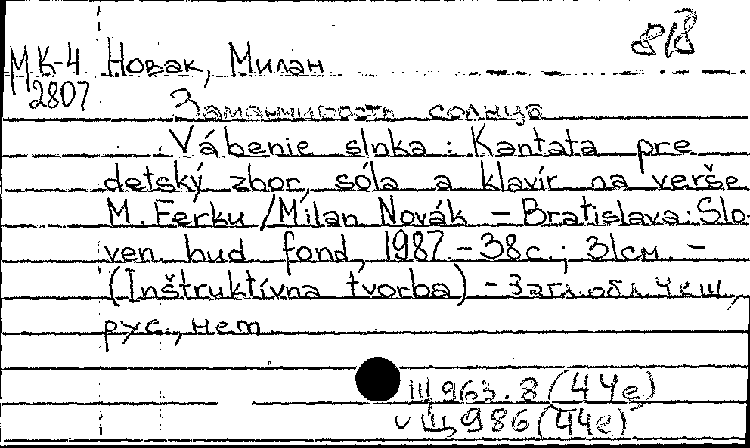 8В
МК-4 Новак, Милан
2807
Заманчивость солнца
Vábenie slnka : Kantata pre
detský zbor, sóla a klavír na verše
M. Ferku / Milan Novák - Bratislava: Slo-
ven. hud fond, 1987. - 38с. ; 31см. -
(Inštruktívna tvorba) - Загл. обл. чеш,
рус., нем
Щ963.8(44е)
Щ986(44е)